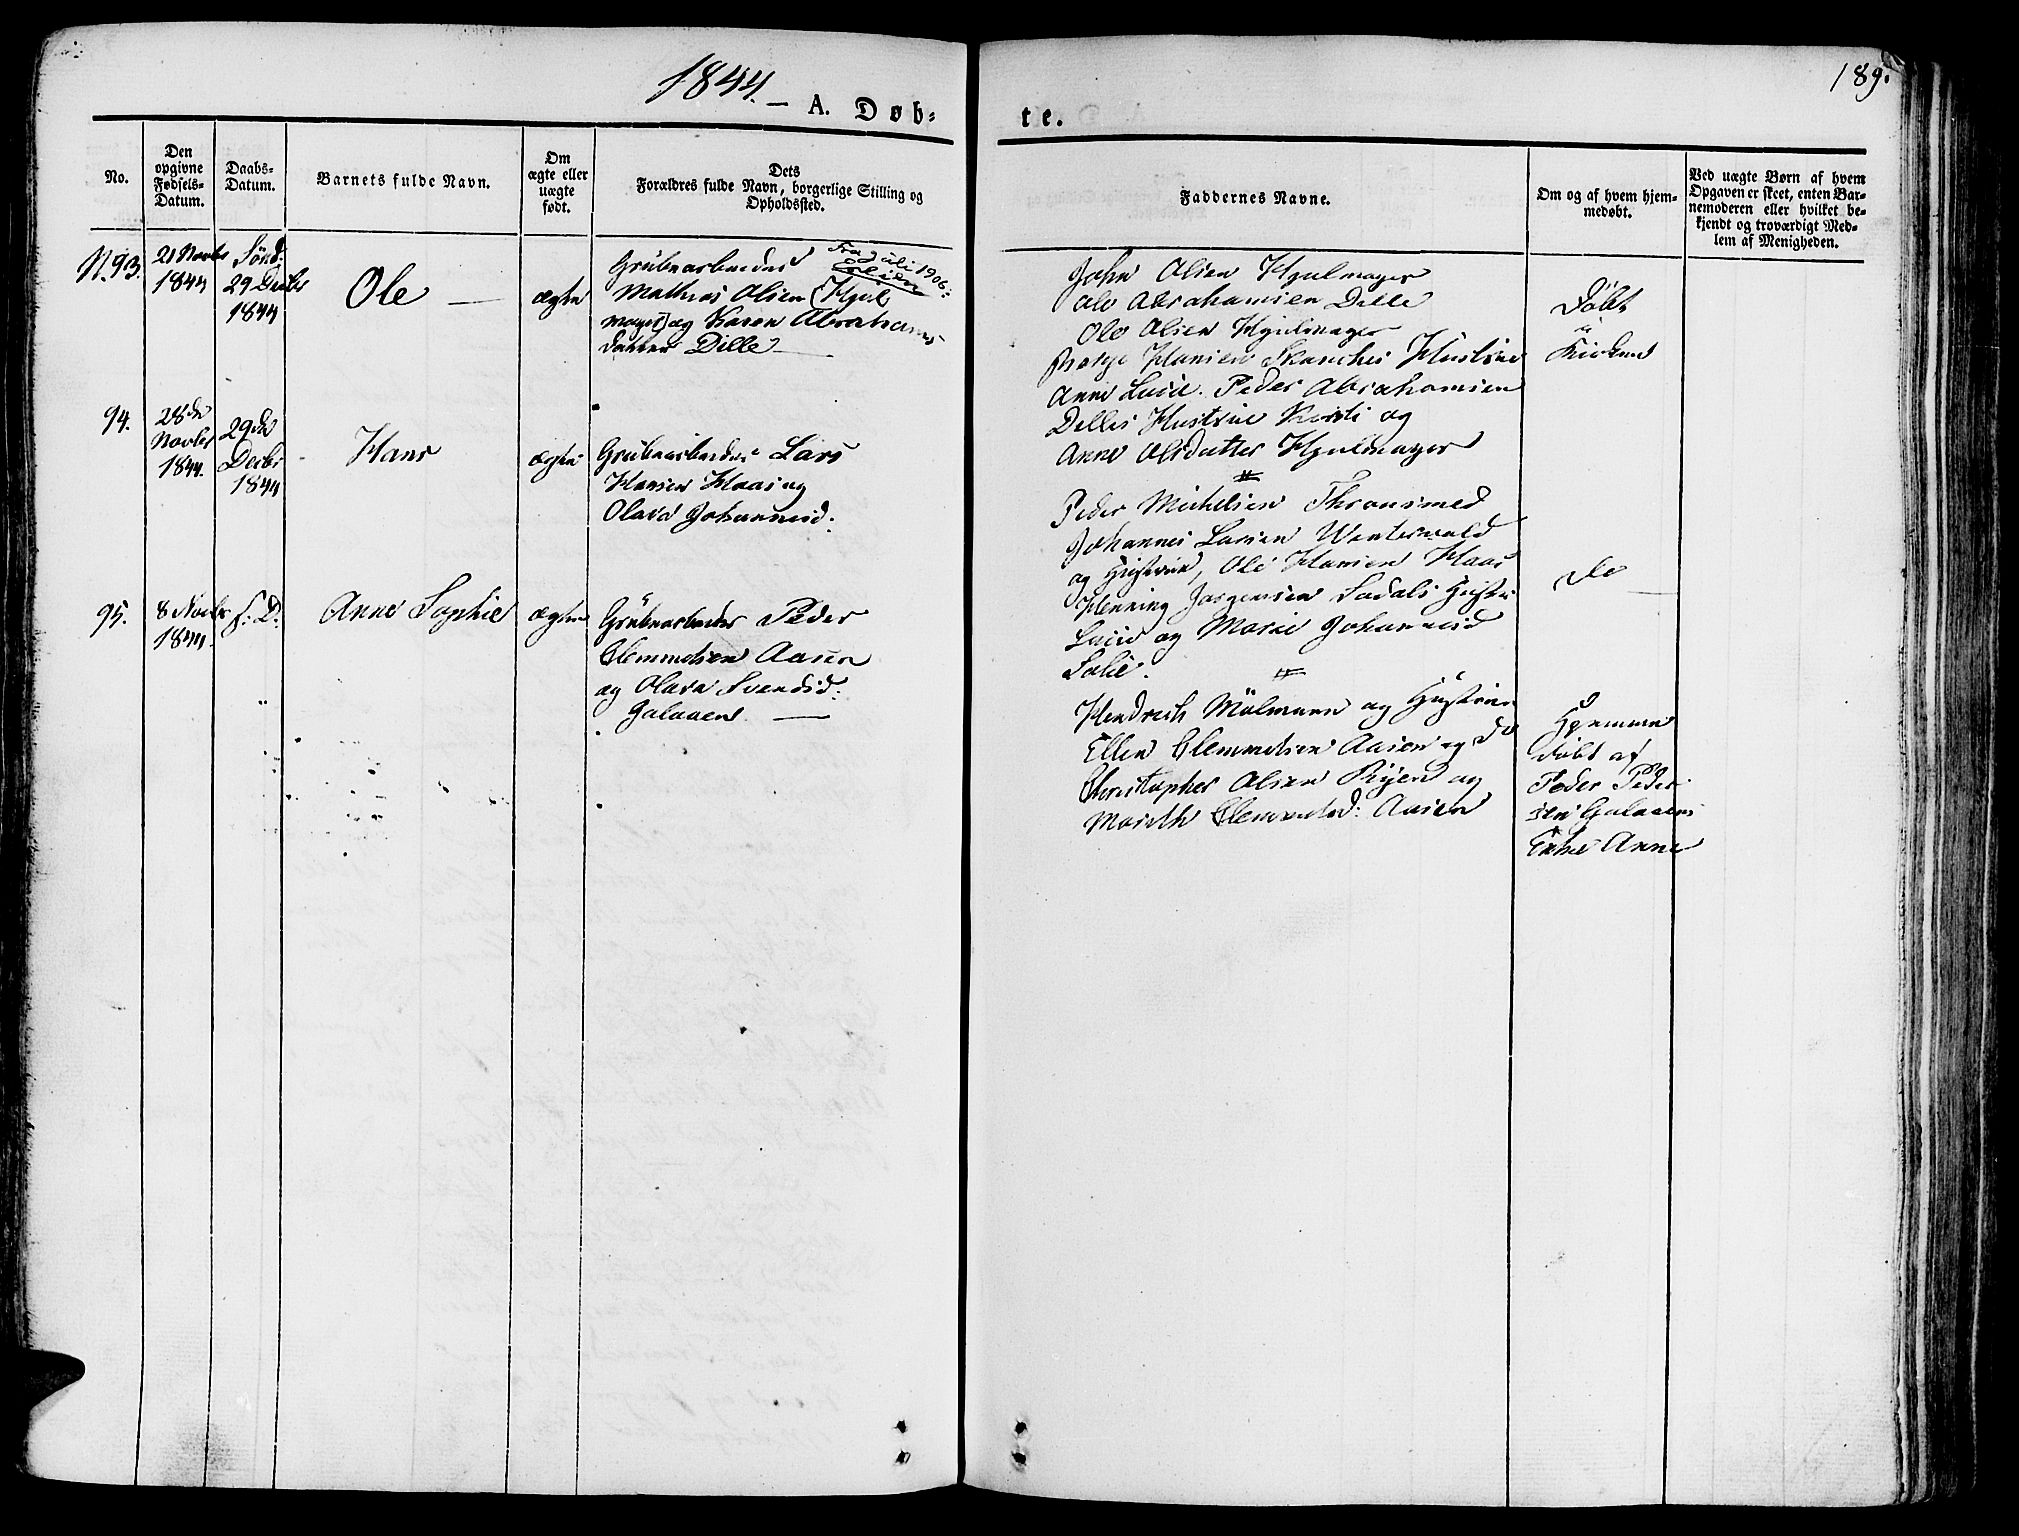 1844.
189.
A. Døb-
te.
No.
Den opgivne Fødsels-Datum.
Daabs-Datum.
Barnets fulde Navn.
Om ægte eller uægte født.
Dets Forældres fulde Navn, borgerlige Stilling og Opholdssted.
Faddernes Navne.
Om og af hvem hjem-
medøbt.
Ved uægte Børn af hvem
Opgaven er skeet, enten Bar-
nemoderen eller hvilket be-
kjendt og troværdigt Med-
lem af Menigheden.
N. 93.
21 Novbr
1844
Sönd:
29 Decbr
1844
Ole
ægte
Grubearbeider
Fra Juli 1906:
Mathias Olsen (Hjul
mager) og Karen Abrahams
datter Dille
John Olsen Hjulmager
Ole Abrahamsen Dille
Ole Olsen Hjulmager
Hansen Skanches Hustrue
Anne Lucie. Peder Abrahamsen
Dilles Hustrue Kirsti og
Anne Olsdatter Hjulmager
Döbt
i
Kirken
94.
28de
Novbr
1844.
29de
Decbr
1844
Hans
ægte
Grubearbeider Lars
Hansen Haas og
Olava Johannesd.
Peder Michelsen Thronsmed
Johannes Larsen Wintervold
og Hustrue, Ole Hansen Haas
Henning Jørgensen Sødals Hustru
Lucie og Marie Johannesd
Salie.
do
95.
8 Novbr
1844.
s: D:
Anne Sophie
ægte
Grubearbeider Peder
Clemmetsen Aasen
og Olava Svendsd:
Galaaen.
Hendrich Mölmann og Hustrue
Ellen Clemmetsen Aasen og do
Christopher Olsen Ryen og
Marith Clemmetsd: Aasen
Hjemme
döbt af
Peder Peder
sen Galaaens
Enke Anne